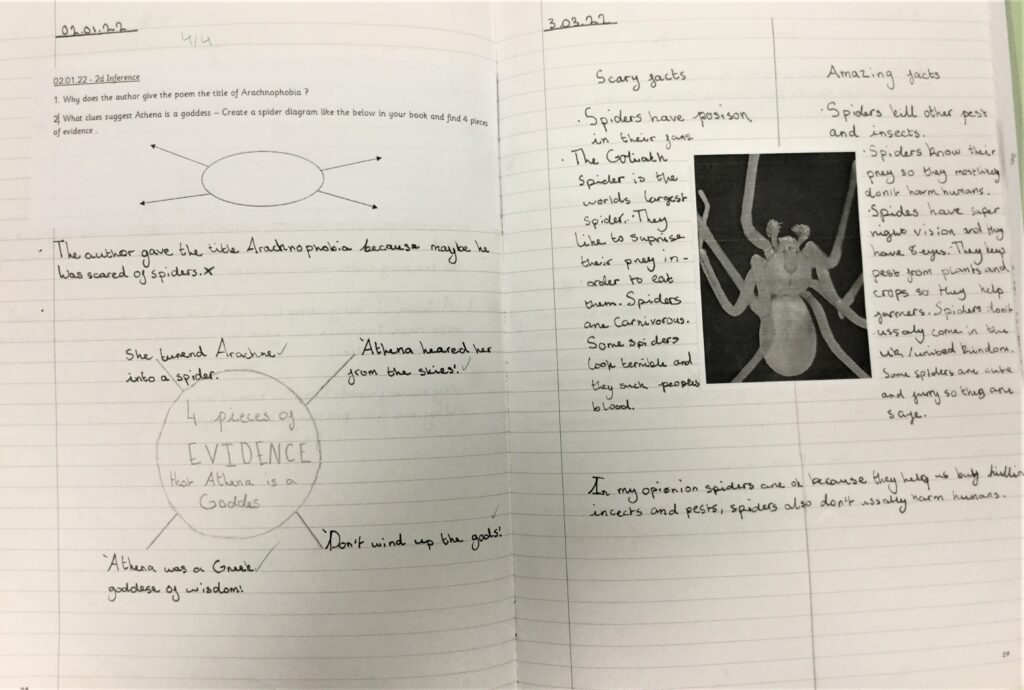 02.01.22
4/4
02.01.22 - 2d Inference
1. Why does the author give the poem the title of Arachnophobia ?
2 What clues suggest Athena is a goddess – Create a spider diagram like the below in your book and find 4 pieces
of evidence .
The author gave the title Arachnophobia because maybe he
was scared of spiders.
She turend Arachne
into a spider.
'Athena heared her
from the skies!'
4 pieces of
EVIDENCE
that Athena is a
Goddes
'Athena was a Greek
goddese of wisdom!
'Don't wind up the gods!'
3.03.22
Scary facts
· Spiders have posison
in their fans.
· The Goliath
spider is the
worlds largest
spider. · They
like to suprise
their prey in-
order to eat
them. Spiders
are Carnivorous.
Some spiders
look terrible and
they suck peoples
blood.
Amazing facts
· Spiders kill other pest
and insects.
· Spiders know their
prey so they
don't harm humans.
· Spides have super
night vision and they
have 8 eyes. They keep
pest from plants and
crops so they help
farmers. Spiders don't
ussaly come in the
uk/united kindom.
Some spiders are cute
and furry so they are
safe.
In my opionion spiders are ok because they help us buy killin
insects and pests, spiders also don't ussally harm humans.
29